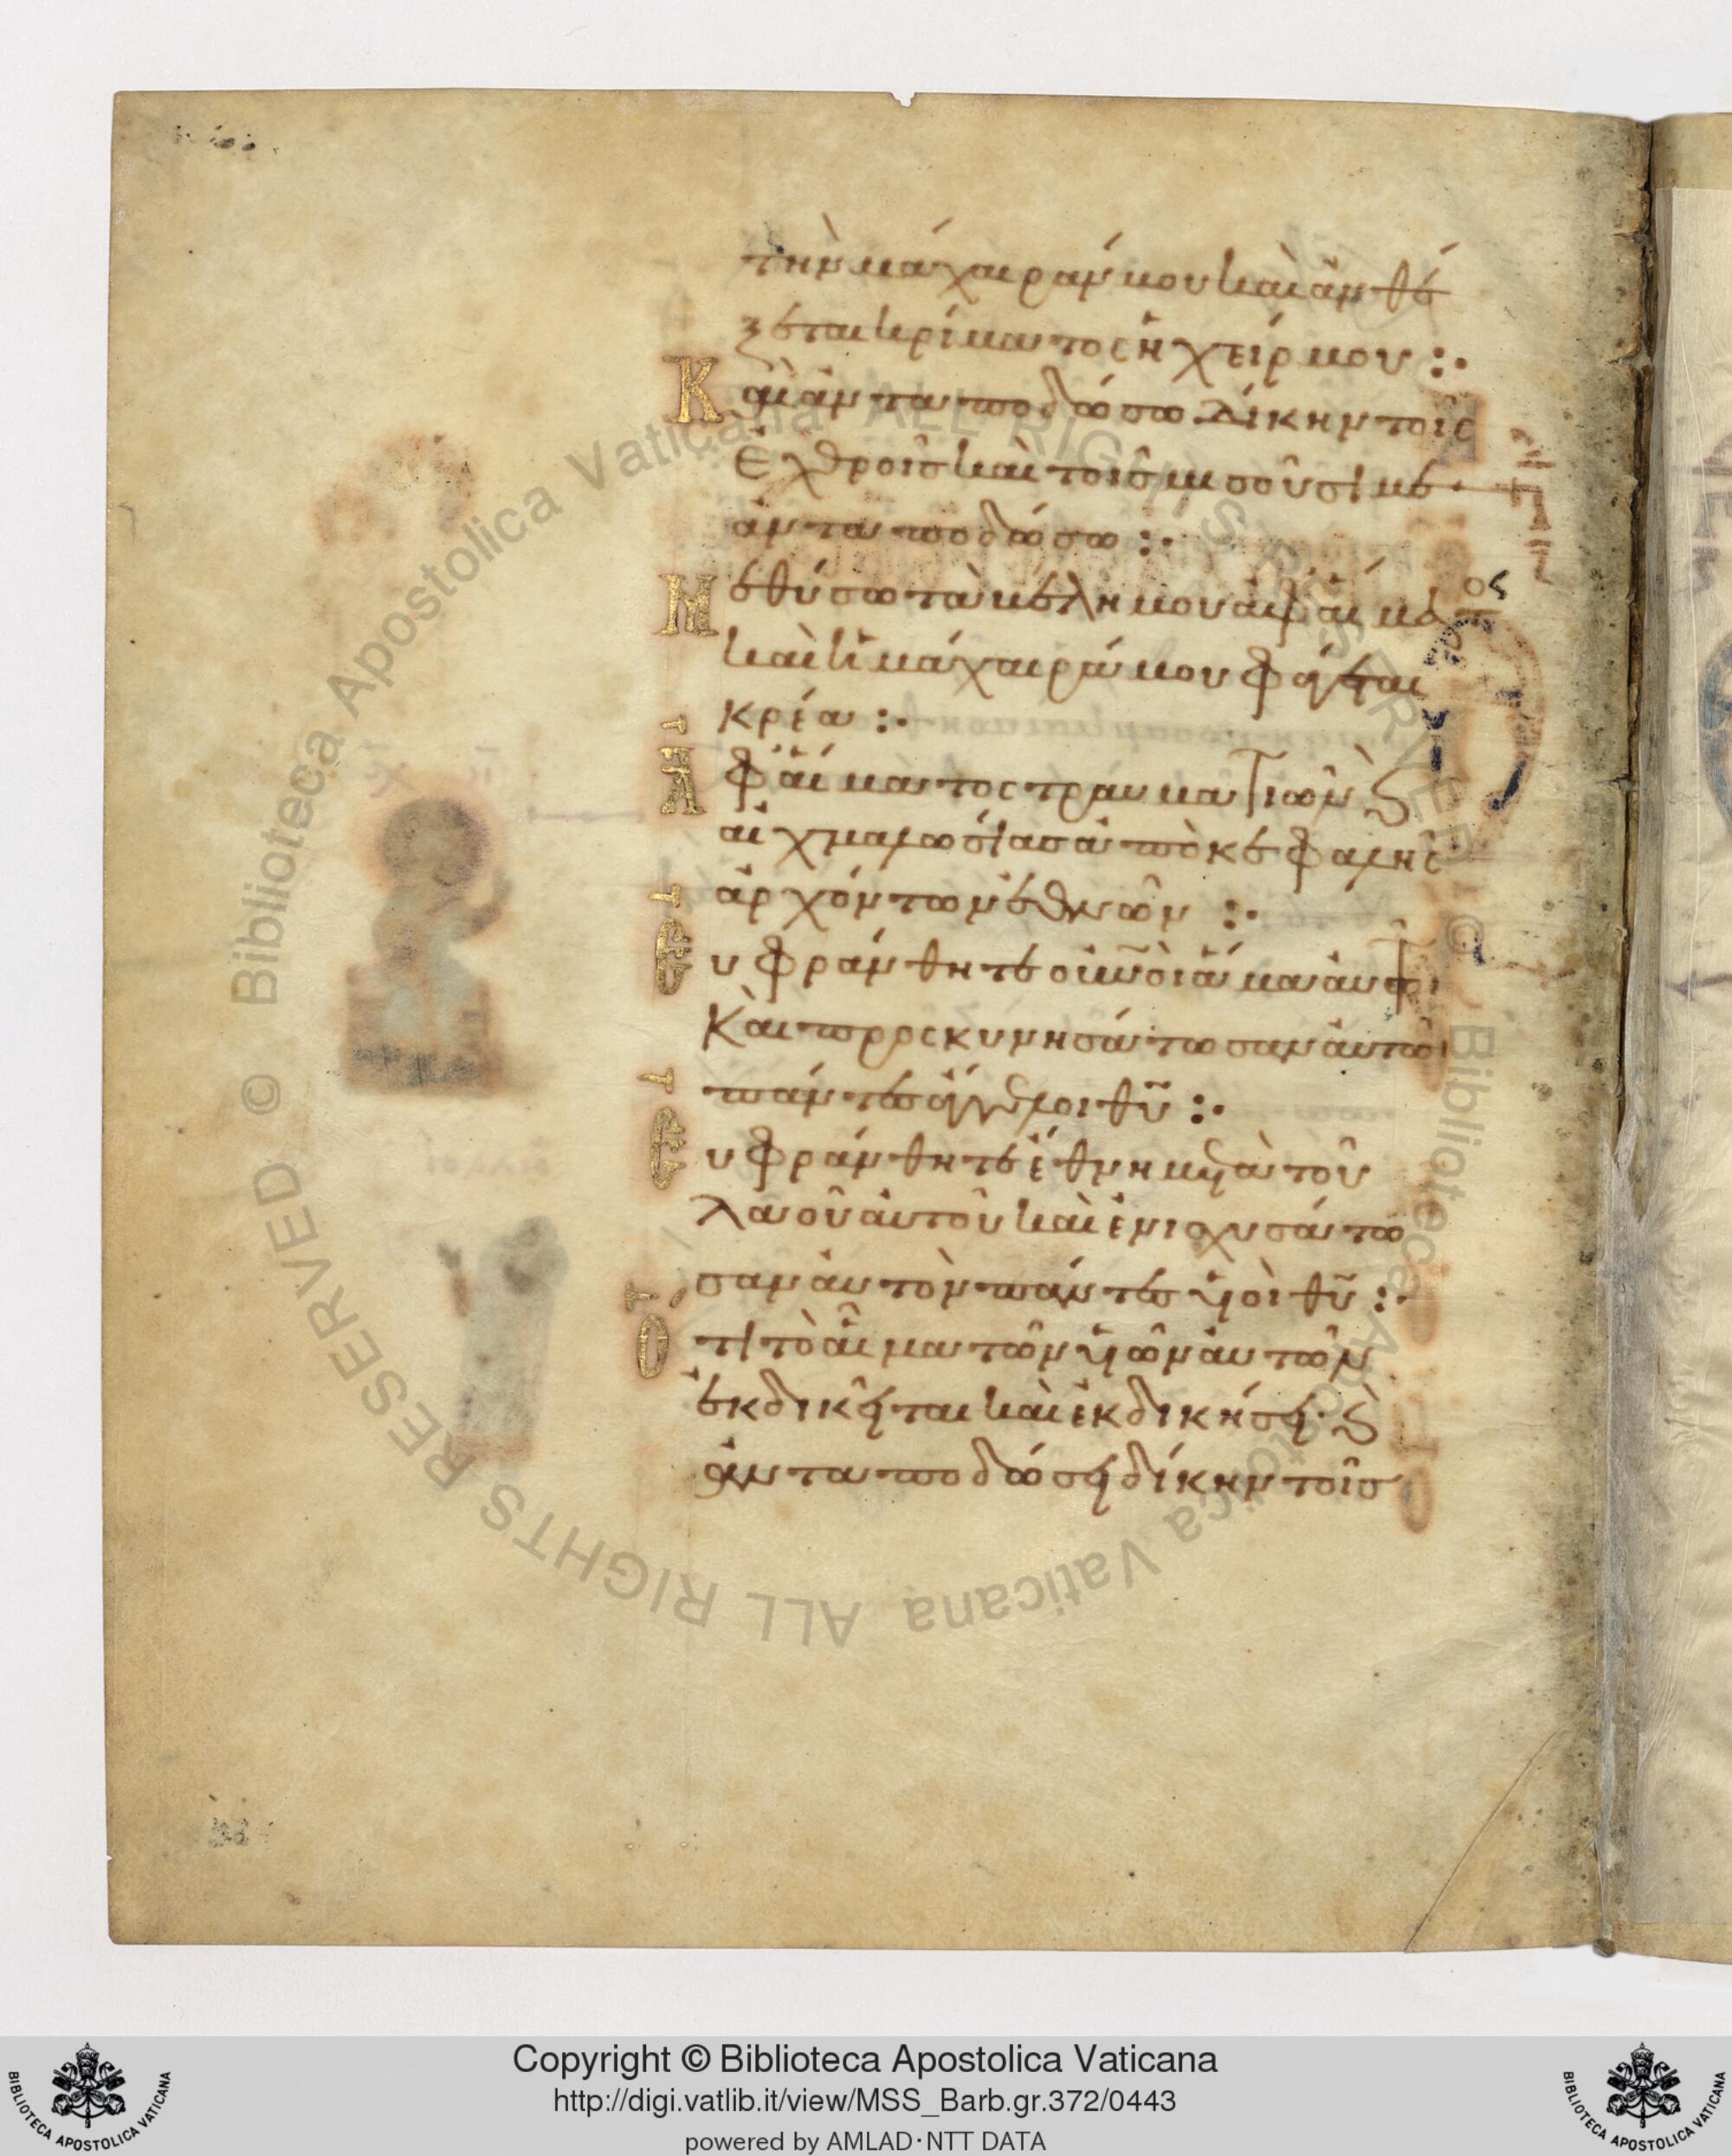 τὴν μάχαιράν μου καὶ ἀνθέ
ξεται κρίματος ἡ χείρ μου :·
Καὶ ἀνταποδώσω δίκην τοῖς
ἐχθροῖς καὶ τοῖς μισοῦσί με
ἀνταποδώσω :·
Μεθύσω τὰ βέλη μου ἀφ' αἵματος
καὶ ἡ μάχαιρά μου φάγεται
κρέα :·
Ἀφ' αἵματος τραυματιῶν καὶ
αἰχμαλωσίας ἀπὸ κεφαλῆς
ἀρχόντων ἐθνῶν :·
Εὐφράνθητε οὐνοὶ ἅμα αὐτῶι
Καὶ προσκυνησάτωσαν αὐτῶι
πάντες ἄγγελοι θυ :·
Εὐφράνθητε ἔθνη μετὰ τοῦ
λαοῦ αὐτοῦ καὶ ἐνισχυσάτω
σαν αὐτὸν πάντες υἱοὶ θυ :·
Ὅτι τὸ αἷμα τῶν υἱῶν αὐτῶν
ἐκδικεῖται καὶ ἐκδικήσει· καὶ
ἀνταποδώσει δίκην τοῖς
© Biblioteca Apostolica Vaticana ALL RIGHTS RESERVED © Biblioteca Apostolica Vaticana ALL RIGHTS RESERVED
BIBLIOTECA APOSTOLICA VATICANA
Copyright © Biblioteca Apostolica Vaticana
http://digi.vatlib.it/view/MSS_Barb.gr.372/0443
powered by AMLAD·NTT DATA
BIBLIOTECA APOSTOLICA VATICANA